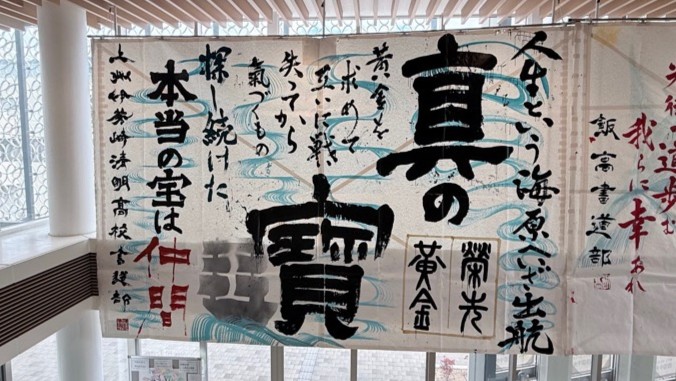 人生という海原へいざ出航
真の
寶
榮光
黄金
黄金を
求めて
互いに戦い
失ってから
氣づくもの
探し続けた
本当の宝は仲間
上州伊勢崎清明高校書道部
我らに幸あれ
飯高書道部